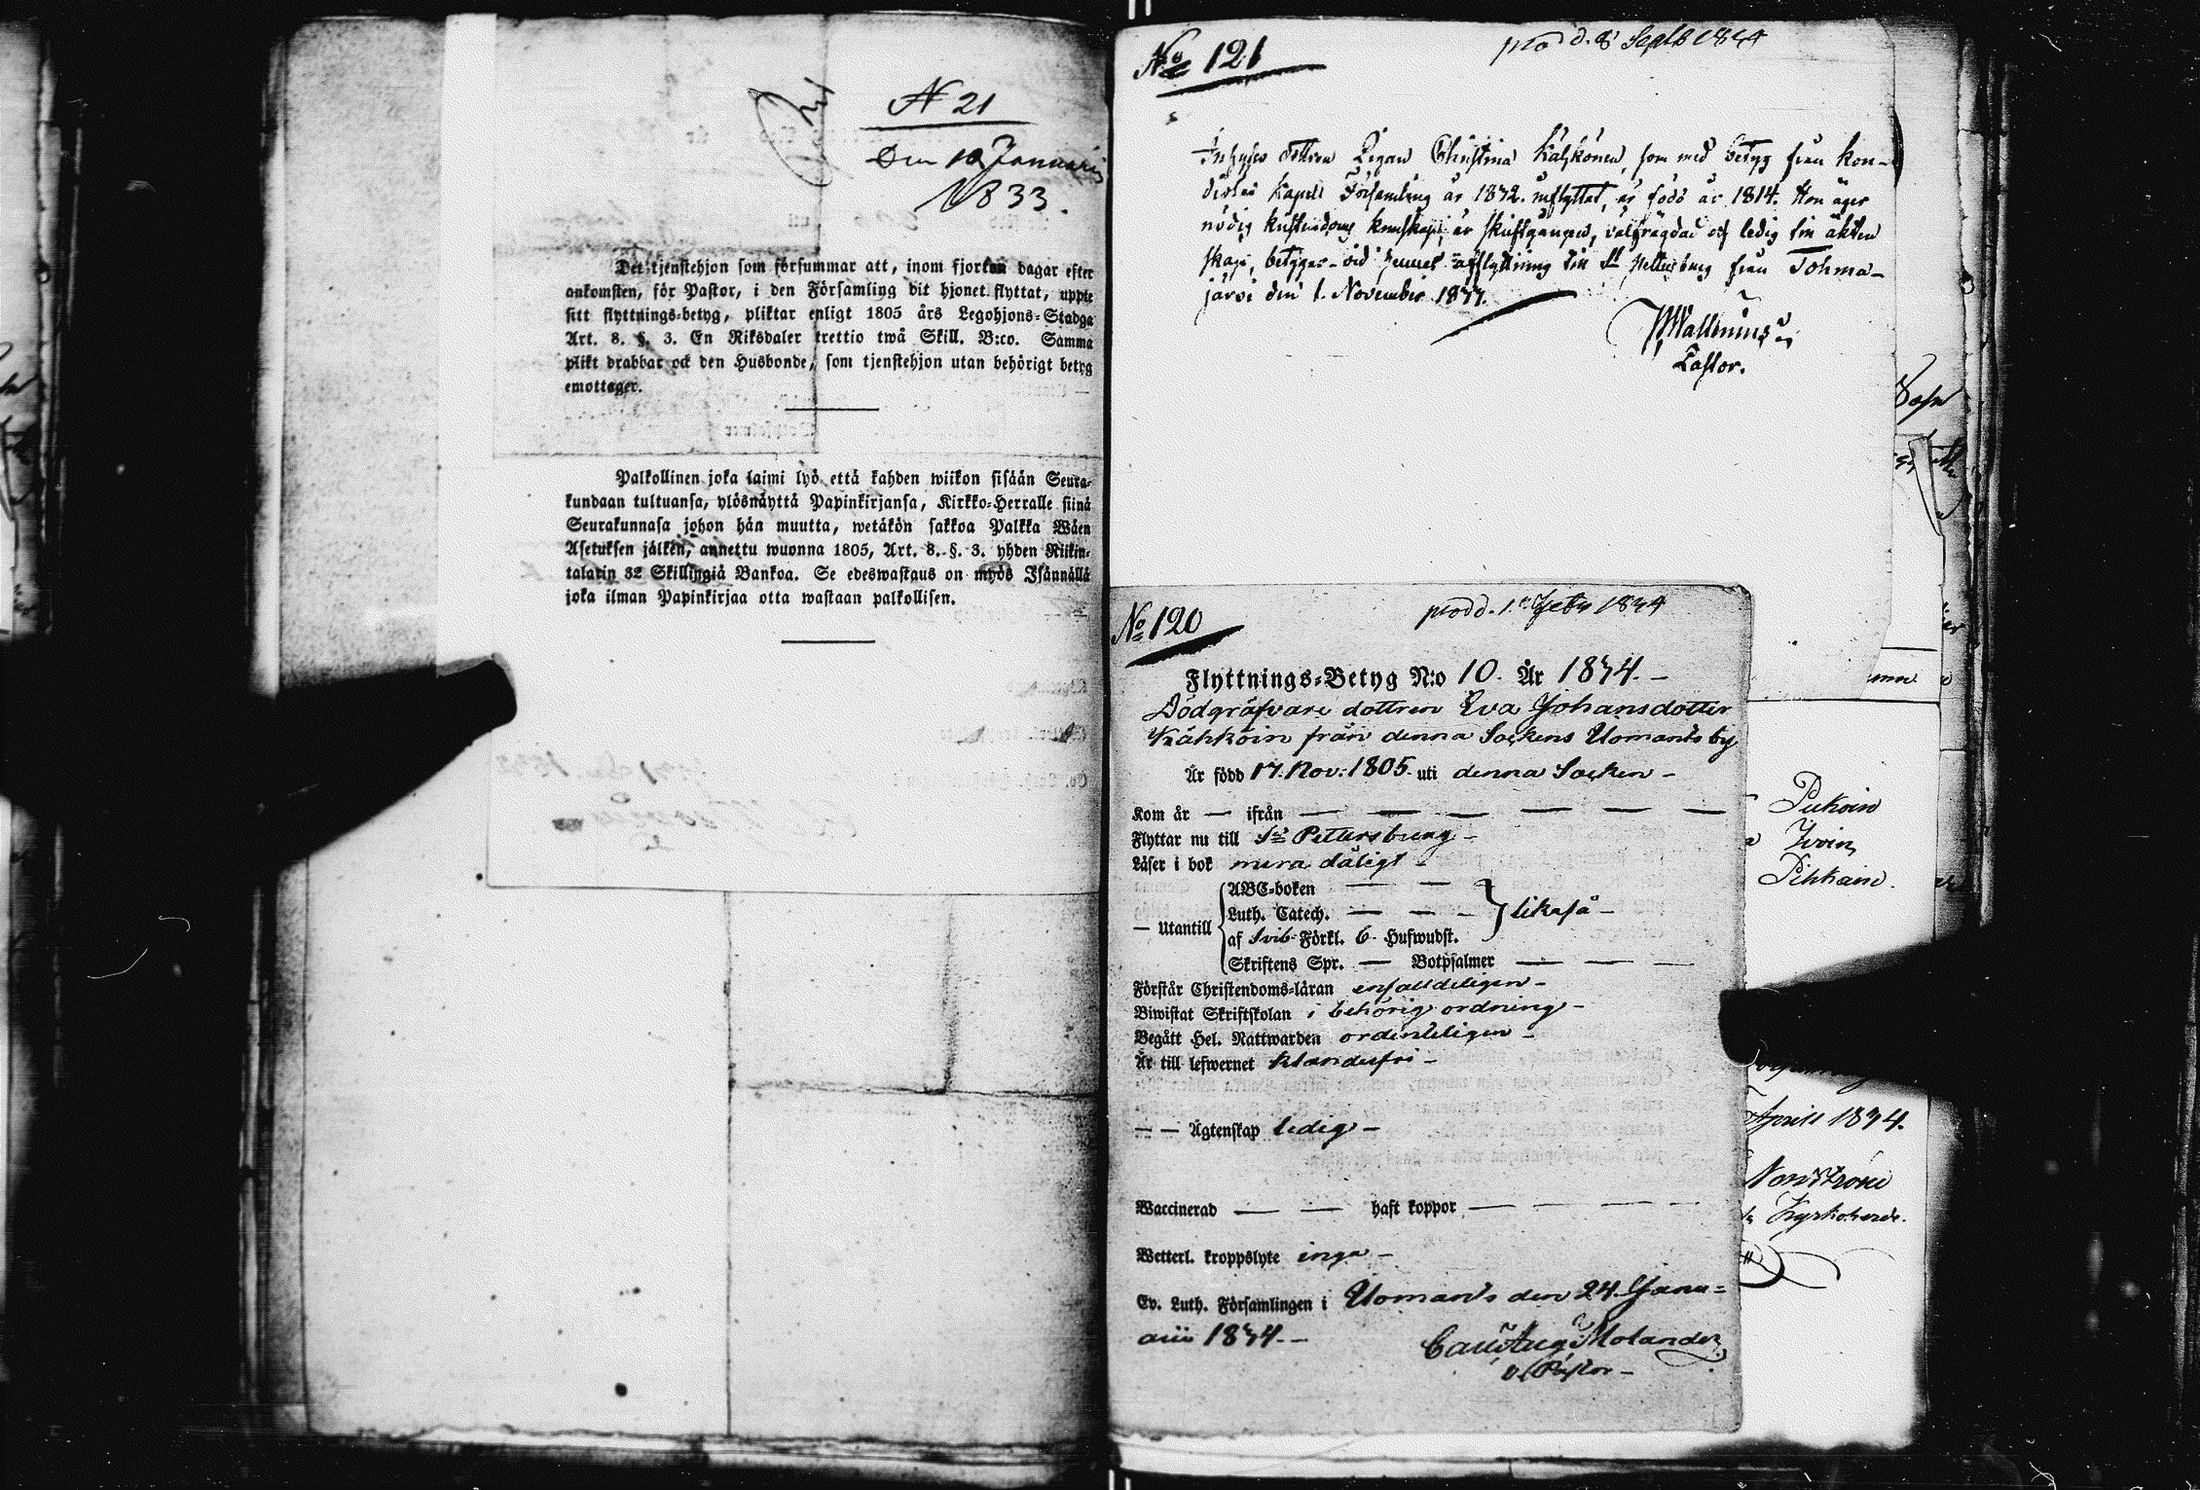 N 21
Den 10 Januarii
1833.
Det tjenstehjon som försummar att, inom fjorton dagar efter
ankomsten, för Pastor, i den Församling dit hjonet flyttat, uppte
sitt flyttnings-betyg, pliktar enligt 1805 års Legohjons-Stadga
Art. 8. §. 3. En Riksdaler trettio twå Skill. B:co. Samma
plikt drabbar ock den Husbonde, som tjenstehjon utan behörigt betyg
emottager.
Palkollinen joka laimi lyö että kahden wiikon sisään Seura-
kundaan tultuansa, ylösnäyttä Papinkirjansa, Kirkko-Herralle siinä
Seurakunnasa johon hän muutta, wetäkön sakkoa Palkka Wäen
Asetuksen jälken, annettu wuonna 1805, Art. 8. §. 3. yhden Riikin-
talarin 32 Skillingiä Bankoa. Se edeswastaus on myös Isännällä
joka ilman Papinkirjaa otta wastaan palkollisen.
No 121
prod. d. 8 Septb 1834
dottren Pigan Christina som med betyg från Kon-
Kapell Församling år 1832 inflyttat, är född år 1814. Hon äger
nödig kristendoms kunskap, är skriftgången, och ledig till äkten
skap, betygas vid hennes afflyttning till St Petersburg från Tohma-
järvi den 1. November 1833.
Wallenius
Pastor.
No 120
prod d. 1 Feby 1834
Flyttnings-Betyg N:o 10. År 1834. -
Dödgräfvare dottren Eva Johansdotter
Kähköin från denna Sockens Ilomants by
Är född 17. Nov: 1805. uti denna Socken -
Kom år — ifrån — — — — — —
Flyttar nu till St Petersburg -
Läser i bok mera dåligt -
ABC-boken — —
Luth. Catech. — — - } likaså -
— Utantill
af Svib. Förkl. 6 Hufwudst.
Skriftens Spr. — Botpsalmer — — —
Förstår Christendoms-läran enfalldeligen -
Biwistat Skriftskolan i behörig ordning -
Begått Hel. Nattwarden ordenteligen -
Är till lefwernet klanderfri -
— — Ägtenskap ledig -
Waccinerad — — haft koppor — — — —
Wetterl. kroppslyte inga -
Ev. Luth. Församlingen i Ilomants den 24. Janu=
arii 1834. -
Carl Aug Molander
v. Pastor -
Pukoin
Ivoin
Pihkain.
April 1834.
Nordström
Kyrkoherde.